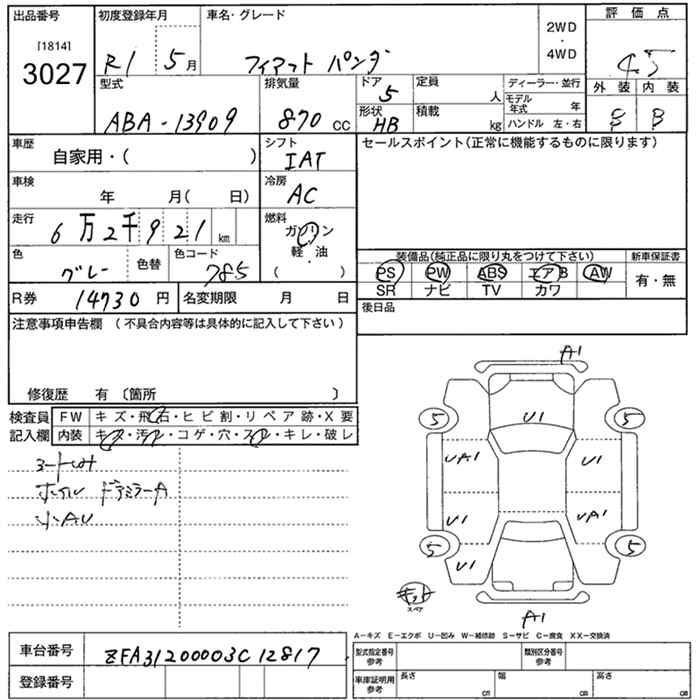 出品番号 初度登録年月 車名・グレード 評価点
[1814]
3027
R1 5月 フィアット パンダ
2WD
・
4WD
4.5
型式 排気量 ドア 定員 ディーラー・並行 外装 内装
ABA-13909 870 CC 5 人 モデル年式 年
形状 積載 ハンドル 左・右
HB kg B
車歴 シフト セールスポイント(正常に機能するものに限ります)
自家用・( ) IAT
車検 冷房
年 月( 日) AC
走行 燃料
6万2千921km ガソリン
・
軽・油
・
( )
色 色替 色コード
グレー 785
装備品(純正品に限り丸をつけて下さい) 新車保証書
PS PW ABS エアB AW
SR ナビ TV カワ
有・無
R券 14730円 名変期限 月 日 後日品
注意事項申告欄 (不具合内容等は具体的に記入して下さい)
修復歴 有 〔箇所 〕
検査員 FW キズ・飛石・ヒビ割・リペア跡・X要
記入欄 内装 キズ・汚レ・コゲ・穴・スレ・キレ・破レ
ホイル ドアミラーA
小AU
A1
5 U1 5
UA1 U1
U1 UA1
5 U1 5
スペア
A1
A-キズ E-エクボ U-凹み W-補修跡 S-サビ C-腐食 XX-交換済
車台番号 ZFA31200003C12817
登録番号
型式指定番号 参考 類別区分番号 参考
車庫証明用 参考 長さ cm 幅 cm 高さ cm